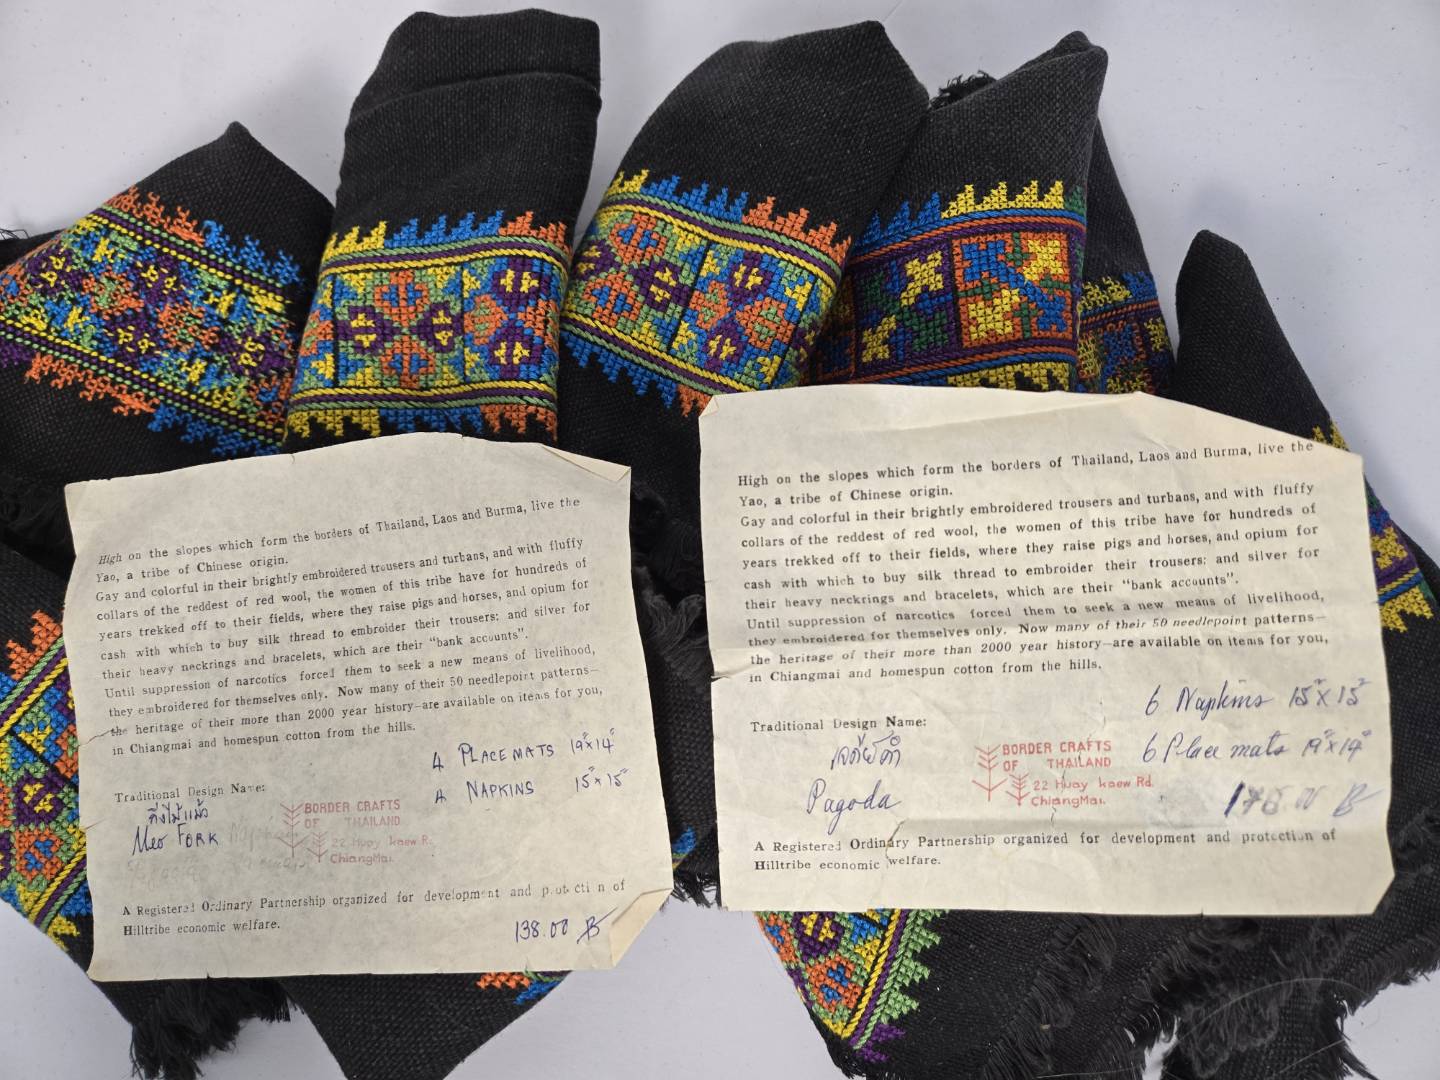 High on the slopes which form the borders of Thailand, Laos and Burma, live the
Yao, a tribe of Chinese origin.
Gay and colorful in their brightly embroidered trousers and turbans, and with fluffy
collars of the reddest of red wool, the women of this tribe have for hundreds of
years trekked off to their fields, where they raise pigs and horses, and opium for
cash with which to buy silk thread to embroider their trousers: and silver for
their heavy neckrings and bracelets, which are their "bank accounts".
Until suppression of narcotics forced them to seek a new means of livelihood,
they embroidered for themselves only. Now many of their 50 needlepoint patterns—
the heritage of their more than 2000 year history—are available on items for you,
in Chiangmai and homespun cotton from the hills.
4 PLACE MATS 19"x14"
4 NAPKINS 15"x15"
Traditional Design Name:
กิ่งไม้แม้ว
Meo FORK
BORDER CRAFTS
OF THAILAND
22 Huay kaew R.
ChiangMai.
A Registered Ordinary Partnership organized for development and protection of
Hilltribe economic welfare.
138.00 B
High on the slopes which form the borders of Thailand, Laos and Burma, live the
Yao, a tribe of Chinese origin.
Gay and colorful in their brightly embroidered trousers and turbans, and with fluffy
collars of the reddest of red wool, the women of this tribe have for hundreds of
years trekked off to their fields, where they raise pigs and horses, and opium for
cash with which to buy silk thread to embroider their trousers: and silver for
their heavy neckrings and bracelets, which are their "bank accounts".
Until suppression of narcotics forced them to seek a new means of livelihood,
they embroidered for themselves only. Now many of their 50 needlepoint patterns—
the heritage of their more than 2000 year history—are available on items for you,
in Chiangmai and homespun cotton from the hills.
6 Napkins 15"x15"
6 Place mats 19"x14"
Traditional Design Name:
Pagoda
BORDER CRAFTS
OF THAILAND
22 Huay kaew Rd.
ChiangMai.
A Registered Ordinary Partnership organized for development and protection of
Hilltribe economic welfare.